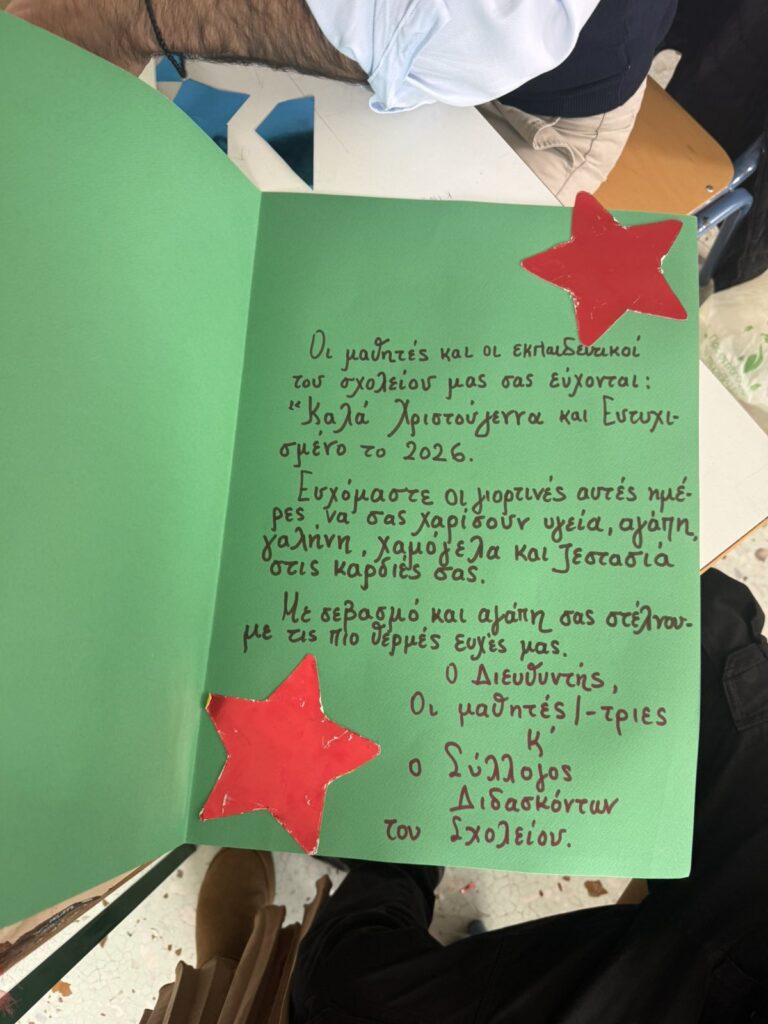 Οι μαθητές και οι εκπαιδευτικοί
του σχολείου μας σας εύχονται:
"Καλά Χριστούγεννα και Ευτυχι-
σμένο το 2026.
Ευχόμαστε οι γιορτινές αυτές ημέ-
ρες να σας χαρίσουν υγεία, αγάπη,
γαλήνη, χαμόγελα και ζεστασιά
στις καρδιές σας.
Με σεβασμό και αγάπη σας στέλνου-
με τις πιο θερμές ευχές μας.
Ο Διευθυντής,
Οι μαθητές/-τριες
κ'
ο Σύλλογος
Διδασκόντων
του Σχολείου.